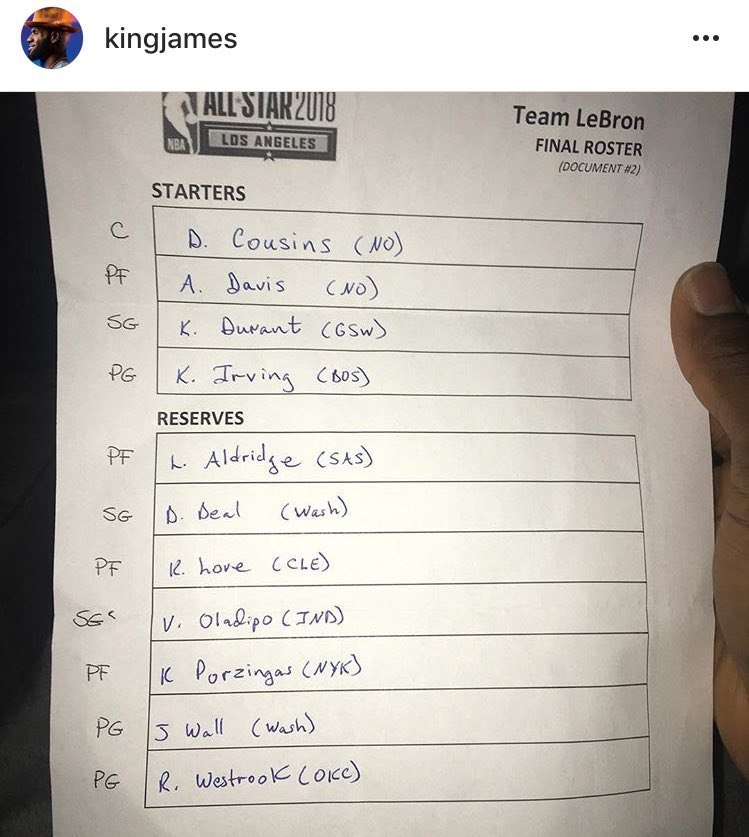 kingjames
ALL★STAR 2018
NBA
LOS ANGELES
Team LeBron
FINAL ROSTER
(DOCUMENT #2)
STARTERS
C D. Cousins (NO)
PF A. Davis (NO)
SG K. Durant (GSW)
PG K. Irving (BOS)
RESERVES
PF L. Aldridge (SAS)
SG B. Beal (Wash)
PF K. Love (CLE)
SG V. Oladipo (IND)
PF K Porzingas (NYK)
PG J Wall (Wash)
PG R. Westrook (OKC)